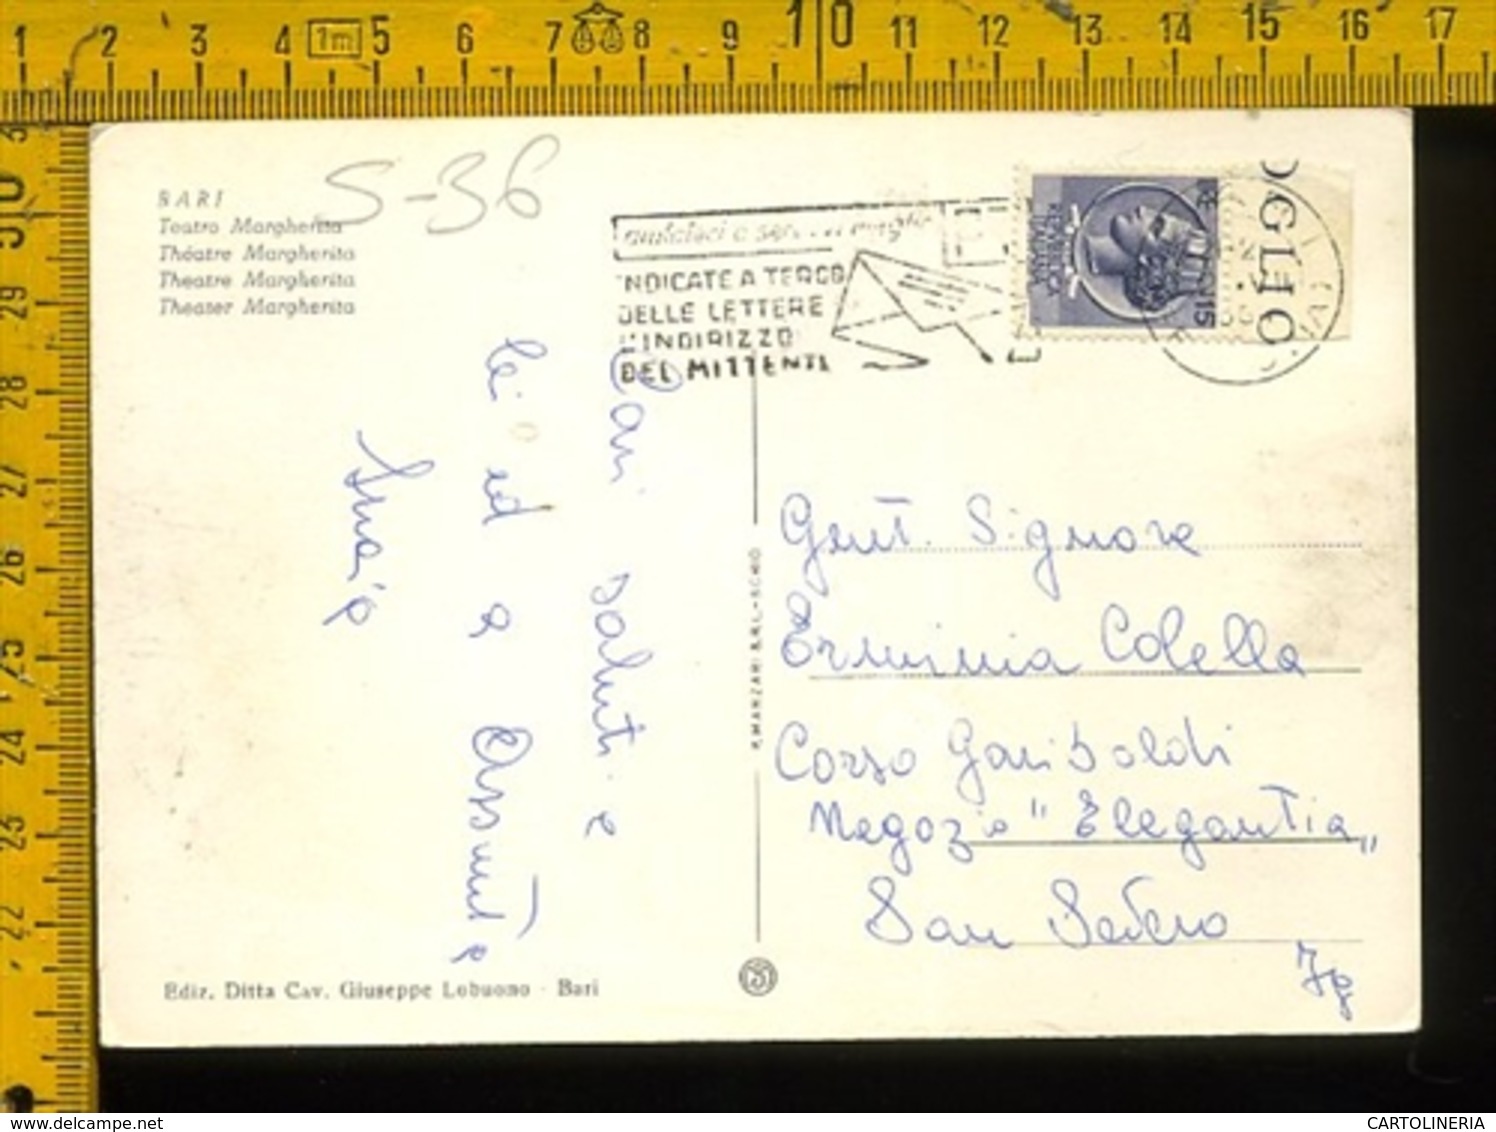 1 2 3 4 1m 5 6 7 8 9 10 11 12 13 14 15 16 17
BARI
Teatro Margherita
Théatre Margherita
Theatre Margherita
Theater Margherita
S-36
aiutateci a servirvi meglio
INDICATE A TERGO
DELLE LETTERE
L'INDIRIZZO
DEL MITTENTE
REPUBBLICA
ITALIANA
15
OGLIO
Cari saluti a
lei ed a Assunta
Gent. Signora
Erminia Colella
Corso Garibaldi
Negozio "Elegantia"
San Severo
Fg
Ediz. Ditta Cav. Giuseppe Lobuono - Bari
29
28
27
26
25
24
23
22
CARTOLINERIA